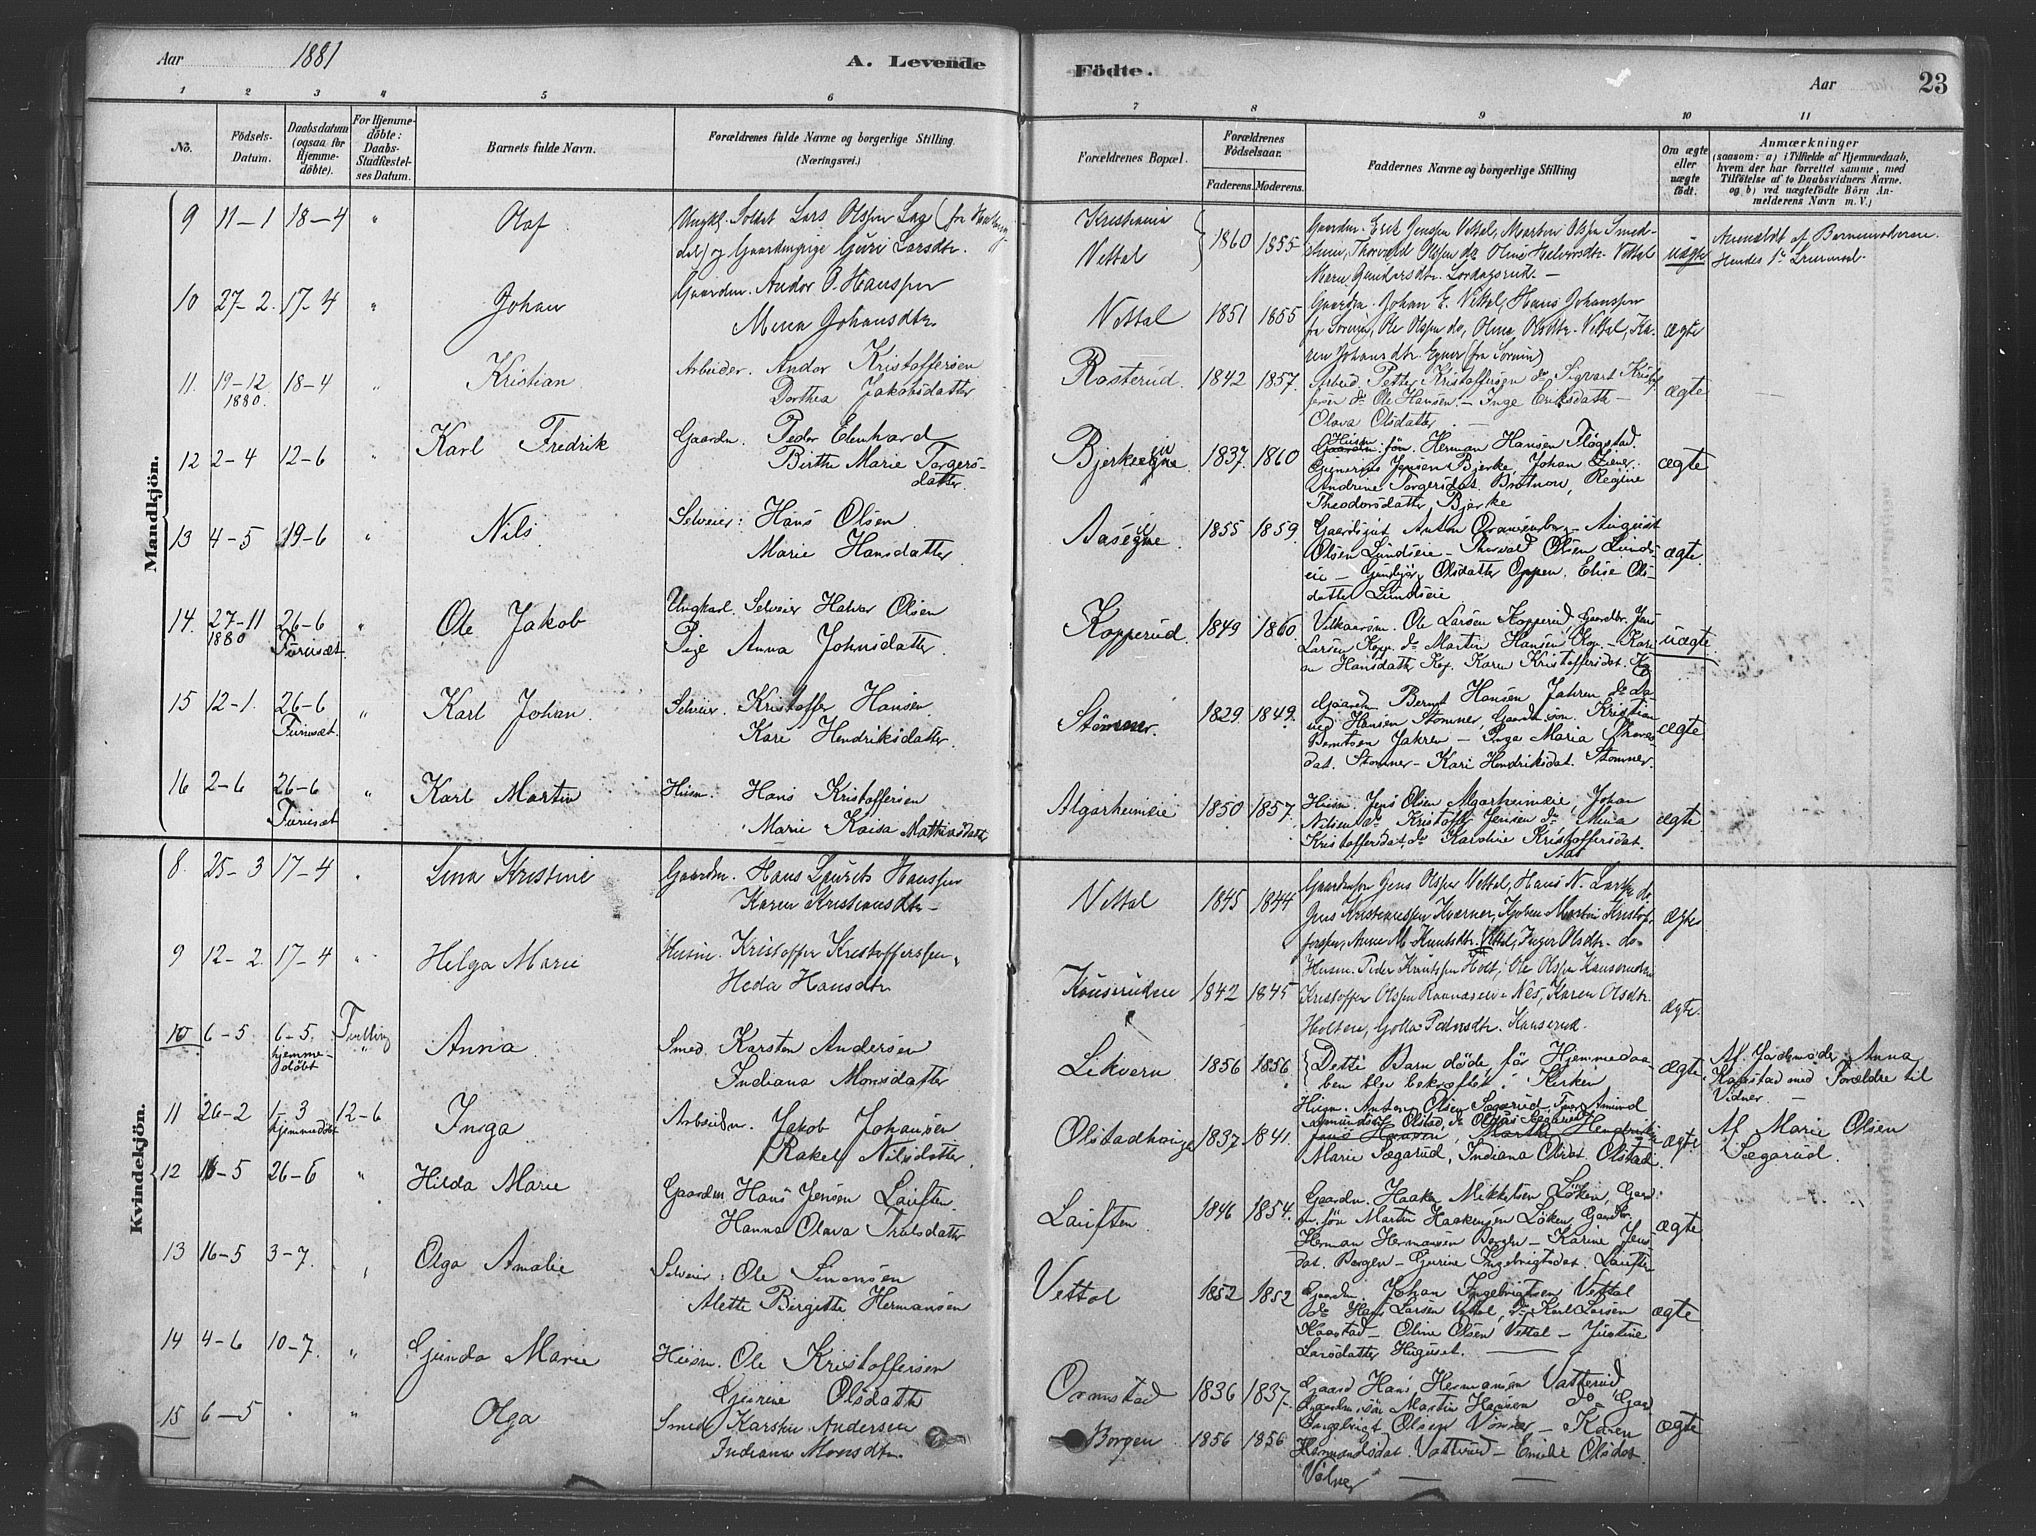 Aar 1881 A. Levende Födte. Aar 23
1 2 3 4 5 6 7 8 9 10 11
No.
Födsels-Datum.
Daabsdatum (ogsaa for Hjemmedöbte).
For Hjemmedöbte: Daabs-Stadfestelses Datum.
Barnets fulde Navn.
Forældrenes fulde Navne og borgerlige Stilling. (Næringsvei.)
Forældrenes Bopæl.
Forældrenes Födselsaar.
Faderens. Moderens.
Faddernes Navne og borgerlige Stilling
Om ægte eller uægte födt.
Anmærkninger
(saasom: a) i Tilfælde af Hjemmedaab, hvem der har forrettet samme, med Tilföielse af to Daabsvidners Navne. og b) ved uægtefödte Börn Anmelderens Navn m. V.)
Mandkjön.
9 11–1 18–4 " Olaf
Ungkl. Soldat Lars Olsen
og Gaardmpige Guri Larsdtr.
Kristiania
Vettal
1860 1855
Gaardm. Erik Jensen Vettal, Martin Olsen
Thorvald Olsen do Oline Halvorsdtr. Vettal
Maren Gundersdtr. Lordagsrud. –
uægte
Anmeldt af Barnemoderen.
Hendes 1ste
10 27–2. 17–4 " Johan
Gaardm. Andor O. Hansen
Mina Johansdtr.
Vettal 1851 1855
Gaardm. Johan E. Vettal, Hans Johansen
Ole Olsen do, Olina Olsdtr. Vettal, Karen Johansdtr.
ægte
11. 19–12 1880. 18–4 " Kristian
Arbeider. Andor Kristoffersen
Dorthea Jakobsdatter
Rasterud. 1842 1857.
Arbeid. Petter Kristoffersen do Sigvart Kristoffersen do Ole Hansen. – Inge Eriksdatter –
Olava Olsdatter
ægte
12 2–4 12–6 " Karl Fredrik
Gaardm. Peder Edenhard
Birthe Marie Torgersdatter.
Bjerkeeie 1837. 1860
Husm. Herman Hansen Flogstad.
Gunerius Jensen Bjerke, Johan
Andrine Torgersdat. Regine
Theodorsdatter Bjerke
ægte
13 4–5 19–6 " Nils.
Selveier: Hans Olsen
Marie Hansdatter.
Aaseeie. 1855 1859.
Gaardsgut Anton Oranienborg – August
Olsen Lundseie – Thorvald Olsen Lundseie – Gunbjør Olsdatter Oppen. Elise Olsdatter Lundseie
ægte.
14. 27–11 1880 26–6 Furuset. " Ole Jakob
Ungkarl. Selveier Halvor Olsen
Pige Anna Johnsdatter.
Kopperud. 1849 1860.
Ole Larsen Kopperud, Gaardbr. Jens
Larsen Kopp. do Martin Hansen Kop. – Karen Hansdatter Kop. Karn Kristoffersdat.
uægte
15 12–1. 26–6 Furuset. " Karl Johan.
Selveier. Kristoffer Hansen.
Kari Hendriksdatter.
Stømner. 1829 1849.
Gaardm. Bernt Hansen Jahren do
Hansen Stømner, Gaardm. søn. Kristian
Berntsen Jahren – Inga Maria
Stomner – Kari Hendriksdat. Stomner.
ægte
16 2–6 26–6 Furuset " Karl Martin
Husm. Hans Kristoffersen
Marie Kaisa Mathiasdatt
Algarheimeie 1850 1857.
Husm. Jens Olsen Algarheimeie, Johan
Nilsen do Kristoffer Jensen do Mina
Kristoffersdat. do Karoline Kristoffersdat.
ægte
Kvindekjön.
8. 25–3 17–4 Lina Kristine
Gaardm. Hans Laurits Hansen
Karen Kristiansdtr –
Vettal 1845 1844
Jens Olsen Vettal, Hans N.
Jens Kristiansen Kværner, Martin Kristoffersen, Anne M. Knutsdtr. Vettal, Inger Olsdtr. do
ægte
9 12–2. 17–4 " Helga Marie
Husm. Kristoffer Kristoffersen
Heda Hansdtr.
Kauserudeie 1842 1845
Husm. Peder Knutsen Holt, Ole Olsen
Kristoffer Olsen Nes, Karen Olsdtr.
Holteie, Kauserud.
ægte.
10 6–5 6–5. hjemmedöbt Tvilling " Anna
Smed. Karsten Andersen
Indiana Monsdatter
Likvern 1856 1856
Dette Barn døde, før Hjemmedaaben blev bekræftet i Kirken
ægte.
Af Jordemoder Anna
Kaarstad med Forældre til
Vidner. –
11 26–2 1–3 hjemmedöbt 12–6 Inga
Arbeidm. Jakob Johansen
Rakel Nilsdatter.
Olstadhauge 1837. 1841.
Husm. Anton Olsen Sægarud,
Marie Sægarud, Indiana Olstad.
ægte.
Af Marie Olsen
Sægarud.
12 16–5 26–6 " Hilda Marie
Gaardm. Hans Jensen Lauften
Hanna Olava Trulsdatter
Lauften. 1846 1854.
Gaardm. Haaken Mikkelsen Løken, Gaardm. søn Martin Haakensen Løken
Herman Hermansen Borgen – Karine Jensdat. Borgen – Gurine Ingebrigtsdat. Lauften
ægte
13 16–5 3–7. Olga Amalie
Selveier: Ole Simensen
Alette Birgitte Hermansen
Vettal 1852 1852
Gaardm. Johan Ingebrigtsen Vettal
do Hans Larsen Vettal, do Karl Larsen
Kaarstad – Oline Olsen Vettal – Justine
Larsdatter Huguset.
ægte
14 4–6 10–7. " Gunda Marie
Husm. Ole Kristoffersen
Gurine Olsdatt
Ormstad 1836 1837.
Gaard Hans Hermansen Vatterud
Gaardm. søn Martin Hansen do Gaard
Ingebrigt Olsen Vølner – Karen
Hermansdat. Vatterud – Emilie Olsdat.
Vølner
ægte
15 6–5 " Olga
Smed Karsten Andersen
Indiana Monsdtr.
Borgen 1856 1856